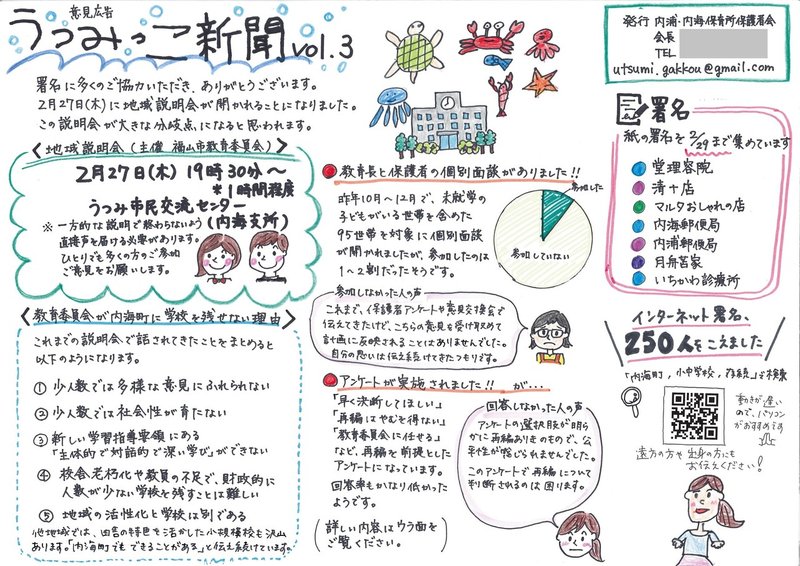 意見広告
うつみっこ新聞 vol.3
署名に多くのご協力いただき、ありがとうございます。
2月27日(木)に地域説明会が開かれることになりました。
この説明会が大きな分岐点になると思われます。
〈地域説明会(主催 福山市教育委員会)〉
2月27日(木) 19時30分〜
*1時間程度
うつみ市民交流センター
(内海支所)
※一方的な説明で終わらないよう
直接声を届ける必要があります。
ひとりでも多くの方のご参加
ご意見をお願いします。
〈教育委員会が内海町に学校を残せない理由〉
これまでの説明会で話されてきたことをまとめると
以下のようになります。
① 少人数では多様な意見にふれられない
② 少人数では社会性が育たない
③ 新しい学習指導要領にある
「主体的で対話的で深い学び」ができない
④ 校舎老朽化や教員の不足で、財政的に
人数が少ない学校を残すことは難しい
⑤ 地域の活性化と学校は別である
他地域では、田舎の特色を活かした小規模校も沢山
あります。「内海町でもできることがある」と伝え続けています。
教育長と保護者の個別面談がありました!!
昨年10月〜12月で、未就学の
子どもがいる世帯を含めた
95世帯を対象に個別面談
が開かれましたが、参加したのは
1〜2割だったそうです。
参加した
参加していない
参加しなかった人の声
これまで、保護者アンケートや意見交換会で
伝えてきたけど、こちらの意見を受け取めて
計画に反映されることはありませんでした。
自分の思いは伝え続けてきたつもりです。
アンケートが実施されました!! が…
「早く決断してほしい」
「再編はやむを得ない」
「教育委員会に任せる」
など、再編を前提とした
アンケートになっています。
回答率もかなり低かった
ようです。
(詳しい内容はウラ面を
ご覧ください。)
回答しなかった人の声
アンケートの選択肢が明ら
かに再編ありきのもので、公
平性が感じられませんでした。
このアンケートで再編について
判断されるのは困ります。
発行 内浦・内海保育所保護者会
会長
TEL
utsumi.gakkou@gmail.com
署名
紙の署名を2/29まで集めています
堂理容院
清十店
マルタおしゃれの店
内海郵便局
内浦郵便局
月舟苫家
いちかわ診療所
インターネット署名、
250人をこえました
「内海町,小中学校,存続」で検索
動きが遅い
ので、パソコン
がおすすめです
遠方の方や出身の方にも
お伝えください!